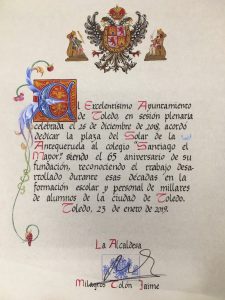 El Excelentísimo Ayuntamiento
de Toledo, en sesión plenaria
celebrada el 26 de diciembre de 2018, acordó
dedicar la plaza del Solar de la
Antequeruela al colegio "Santiago el
Mayor", siendo el 65 aniversario de su
fundación, reconociendo el trabajo desa-
rrollado durante esas décadas en la
formación escolar y personal de millares
de alumnos de la ciudad de Toledo.
Toledo, 23 de enero de 2019.
La Alcaldesa
Milagros Tolón Jaime